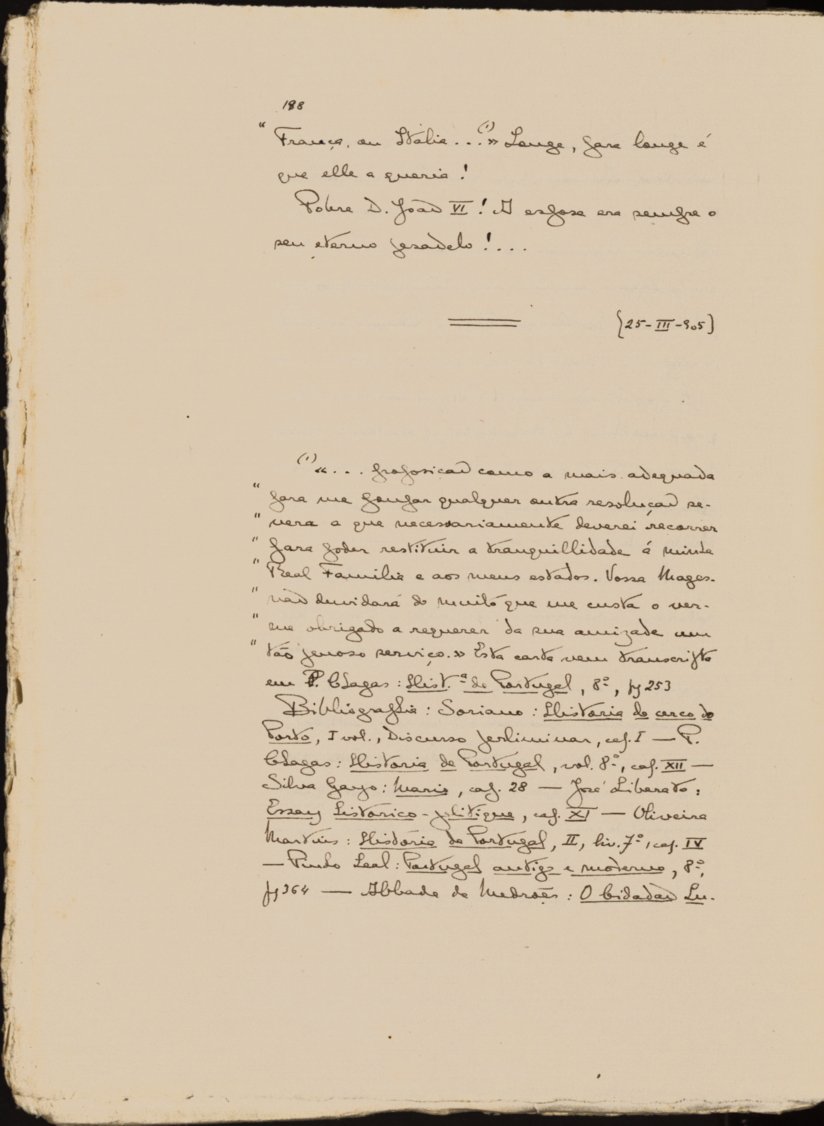 188
" França, ou Italia...(1)» Longe, para longe é
que elle a queria!
Pobre D. João VI! A esposa era sempre o
seu eterno pesadelo!...
{25-III-905}
(1) «... proposicaõ como a mais adequada
" para me poupar qualquer outra resoluçaõ se-
" vera a que necessariamente deverei recorrer
" para poder restituir a tranquillidade á minha
" Real Familia e aos meus estados. Vossa Mages.
" naõ duvidará do muito que me custa o ver-
" me obrigado a requerer da sua amizade um
" tão penoso serviço.» Esta carta vem transcripta
em P. Chagas: Hist.ª de Portugal, 8º, pg 253
Bibliographia: Soriano: Historia do cerco do
Porto, I vol., Discurso perliminar, cap. I — P.
Chagas: Historia de Portugal, vol. 8º, cap. XII —
Silva Gayo: Mario, cap. 28 — José Liberato:
Essay historico-politique, cap. XI — Oliveira
Martins: Historia de Portugal, II, liv. 7º, cap. IV
— Pinho Leal: Portugal antigo e moderno, 8º,
pg 364 — Abbade de Medrões: O Cidadaõ Lu-